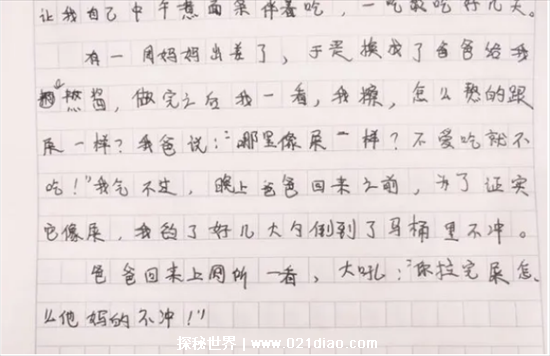 让我自己中午煮面条伴着吃，一吃就吃好几天。
有一周妈妈出差了，于是换成了爸爸给我
熬酱，做完之后我一看，我擦，怎么熬的跟
屎一样？我爸说：“哪里像屎一样？不爱吃就不
吃！”我气不过，晚上爸爸回来之前，为了证实
它像屎，我舀了好几大勺倒到了马桶里不冲。
爸爸回来上厕所一看，大吼：“你拉完屎怎
么他妈的不冲！”
探秘世界 | www.021diao.com